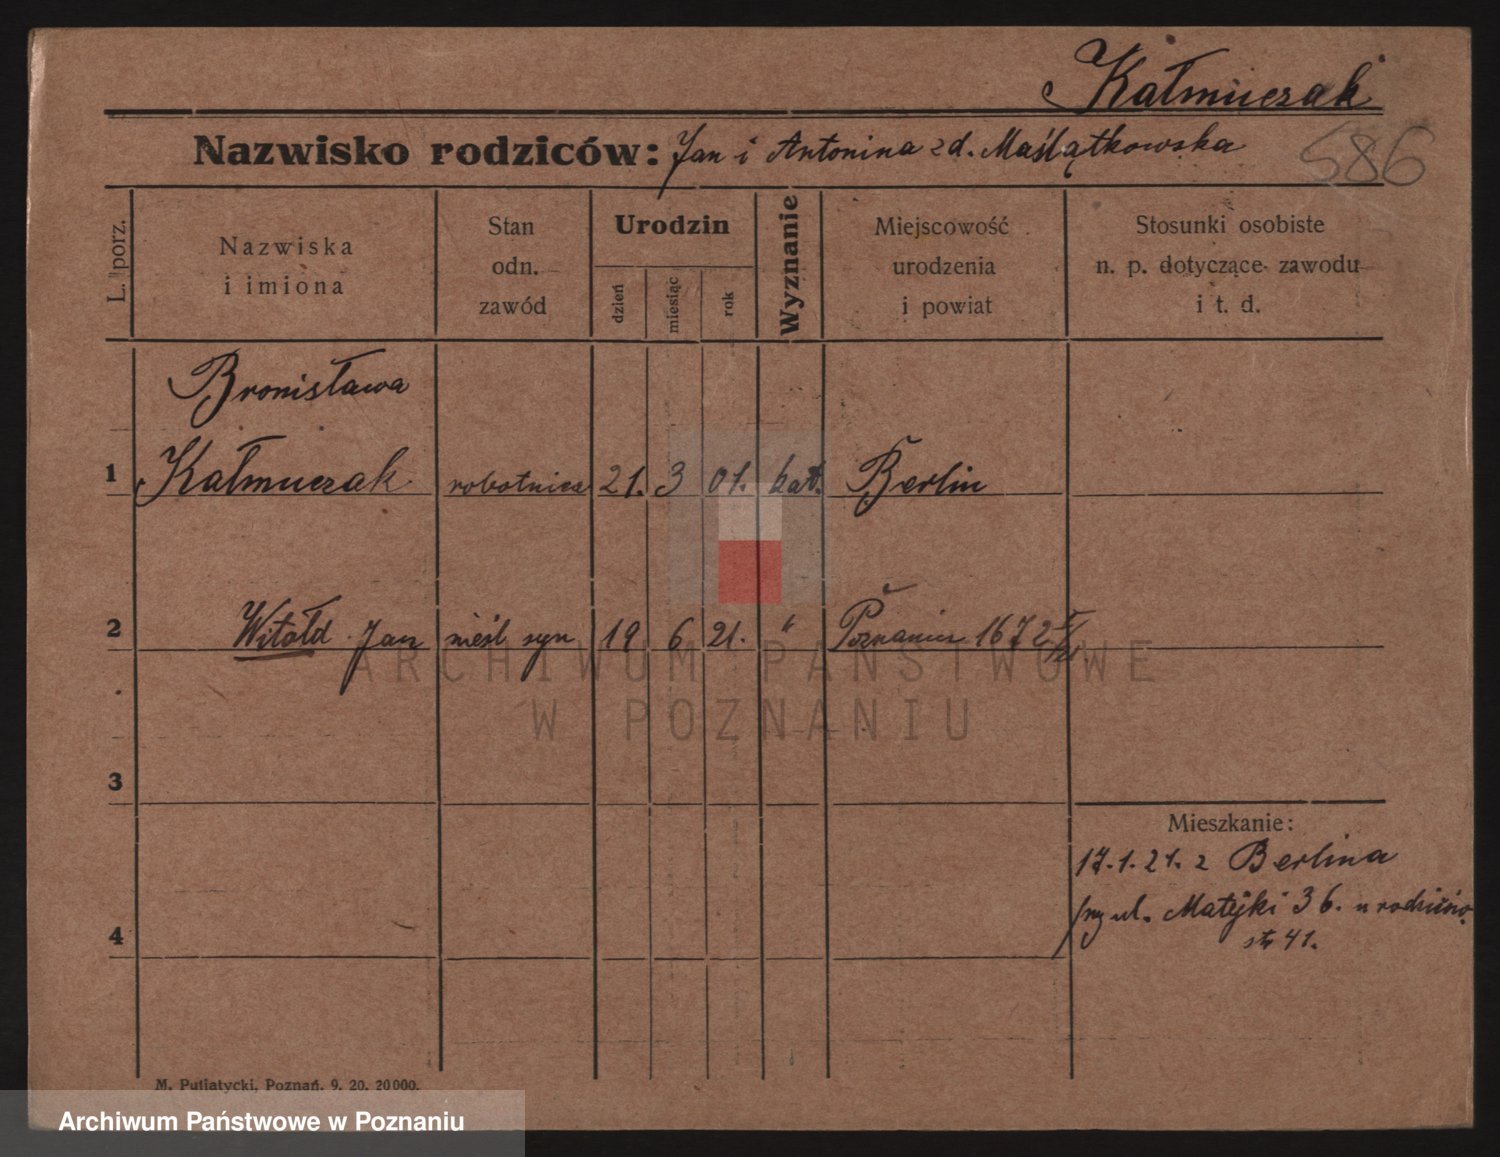 Kałmuczak
Nazwisko rodziców: Jan i Antonina zd. Maślątkowska
586
L. porz.
Nazwiska
i imiona
Stan
odn.
zawód
Urodzin
dzień
miesiąc
rok
Wyznanie
Miejscowość
urodzenia
i powiat
Stosunki osobiste
n. p. dotyczące zawodu
i t. d.
Bronisława
1 Kałmuczak robotnica 21. 3 01. kat. Berlin
2 Witold Jan nieśl syn 19 6 21. " Poznaniu 1672
ARCHIWUM PAŃSTWOWE
W POZNANIU
3
Mieszkanie:
17.1.21. z Berlina
ul. Matejki 36. u rodziców
4
str 41.
M. Putiatycki, Poznań. 9. 20. 20000.
Archiwum Państwowe w Poznaniu